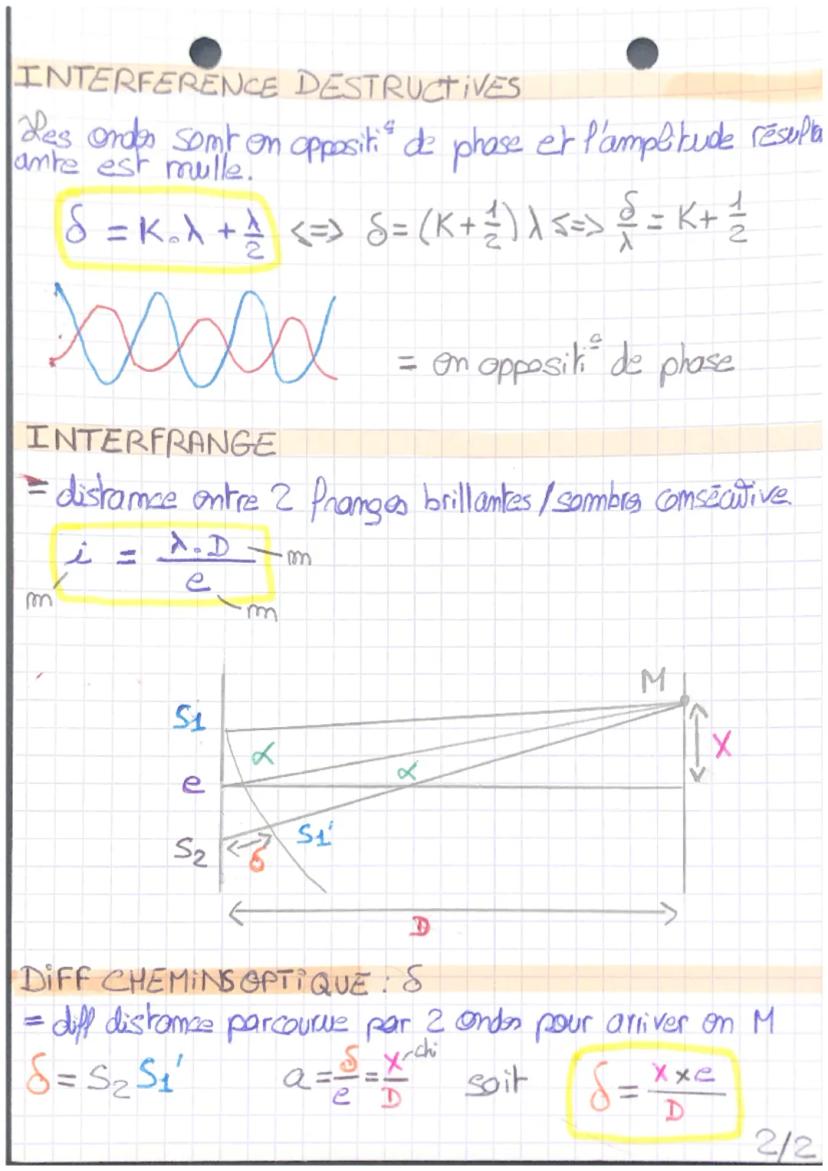 INTERFERENCE DESTRUCTIVES
Les ondes sont en oppositiᵒ de phase et l'amplitude résulta
ante est nulle.
δ = K.λ + λ/2 <=> δ = (K + 1/2) λ <=> δ/λ = K + 1/2
= en oppositiᵒ de phase
INTERFRANGE
= distance entre 2 franges brillantes / sombres consécutive.
i = λ.D / e
m
m
m
M
S1
α
X
e
α
S2
S1'
δ
D
DIFF CHEMINS OPTIQUE : δ
= diff distance parcourue par 2 ondes pour arriver en M
δ = S2 S1' a = δ/e = X/D chi soit δ = X x e / D
2/2